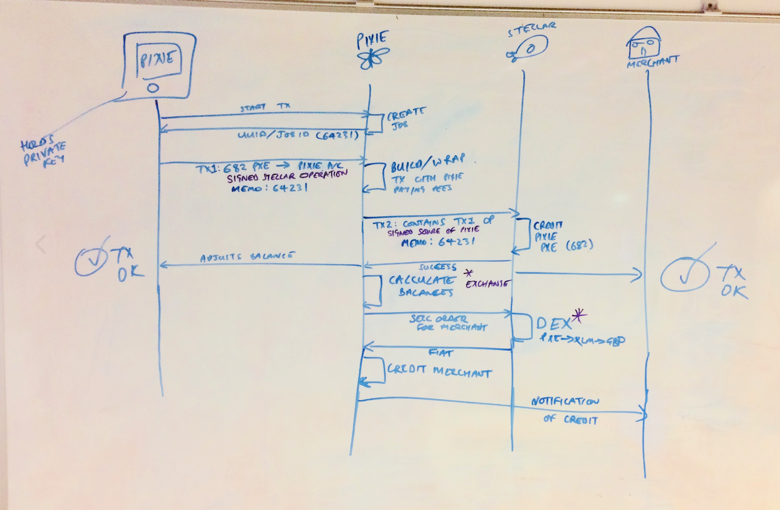 PIXIE
PIXIE
STELLAR
MERCHANT
HOLDS
PRIVATE
KEY
START TX
CREATE
JOB
UUID/JOBID (64231)
TX1: 682 PXE → PIXIE A/C
SIGNED STELLAR OPERATION
MEMO: 64231
BUILD/WRAP
TX WITH PIXIE
PAYING FEES
TX2: CONTAINS TX1 OP
SIGNED SOURCE OF PIXIE
MEMO: 64231
CREDIT
PIXIE
PXE (682)
TX
OK
ADJUSTS BALANCE
SUCCESS
TX
OK
CALCULATE *
BALANCES EXCHANGE
SELL ORDER
FOR MERCHANT
DEX*
PXE→XLM→GBP
FIAT
CREDIT MERCHANT
NOTIFICATION
OF CREDIT